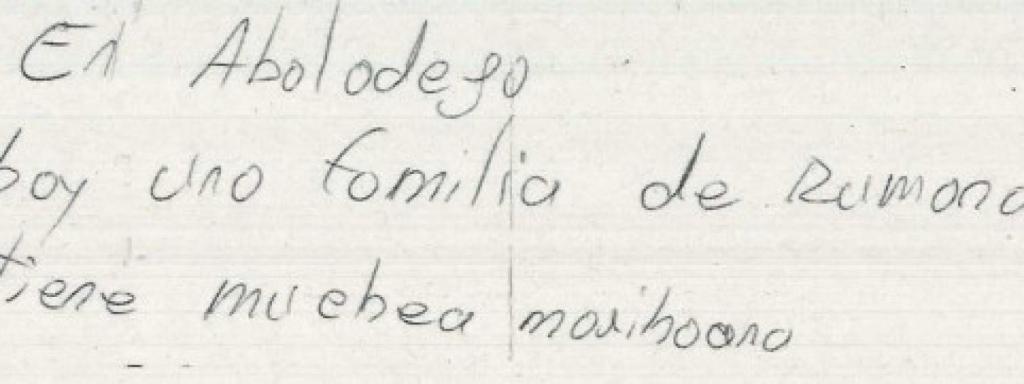 En Abolodego
hoy una familia de Rumano
tiene muchea marihoana